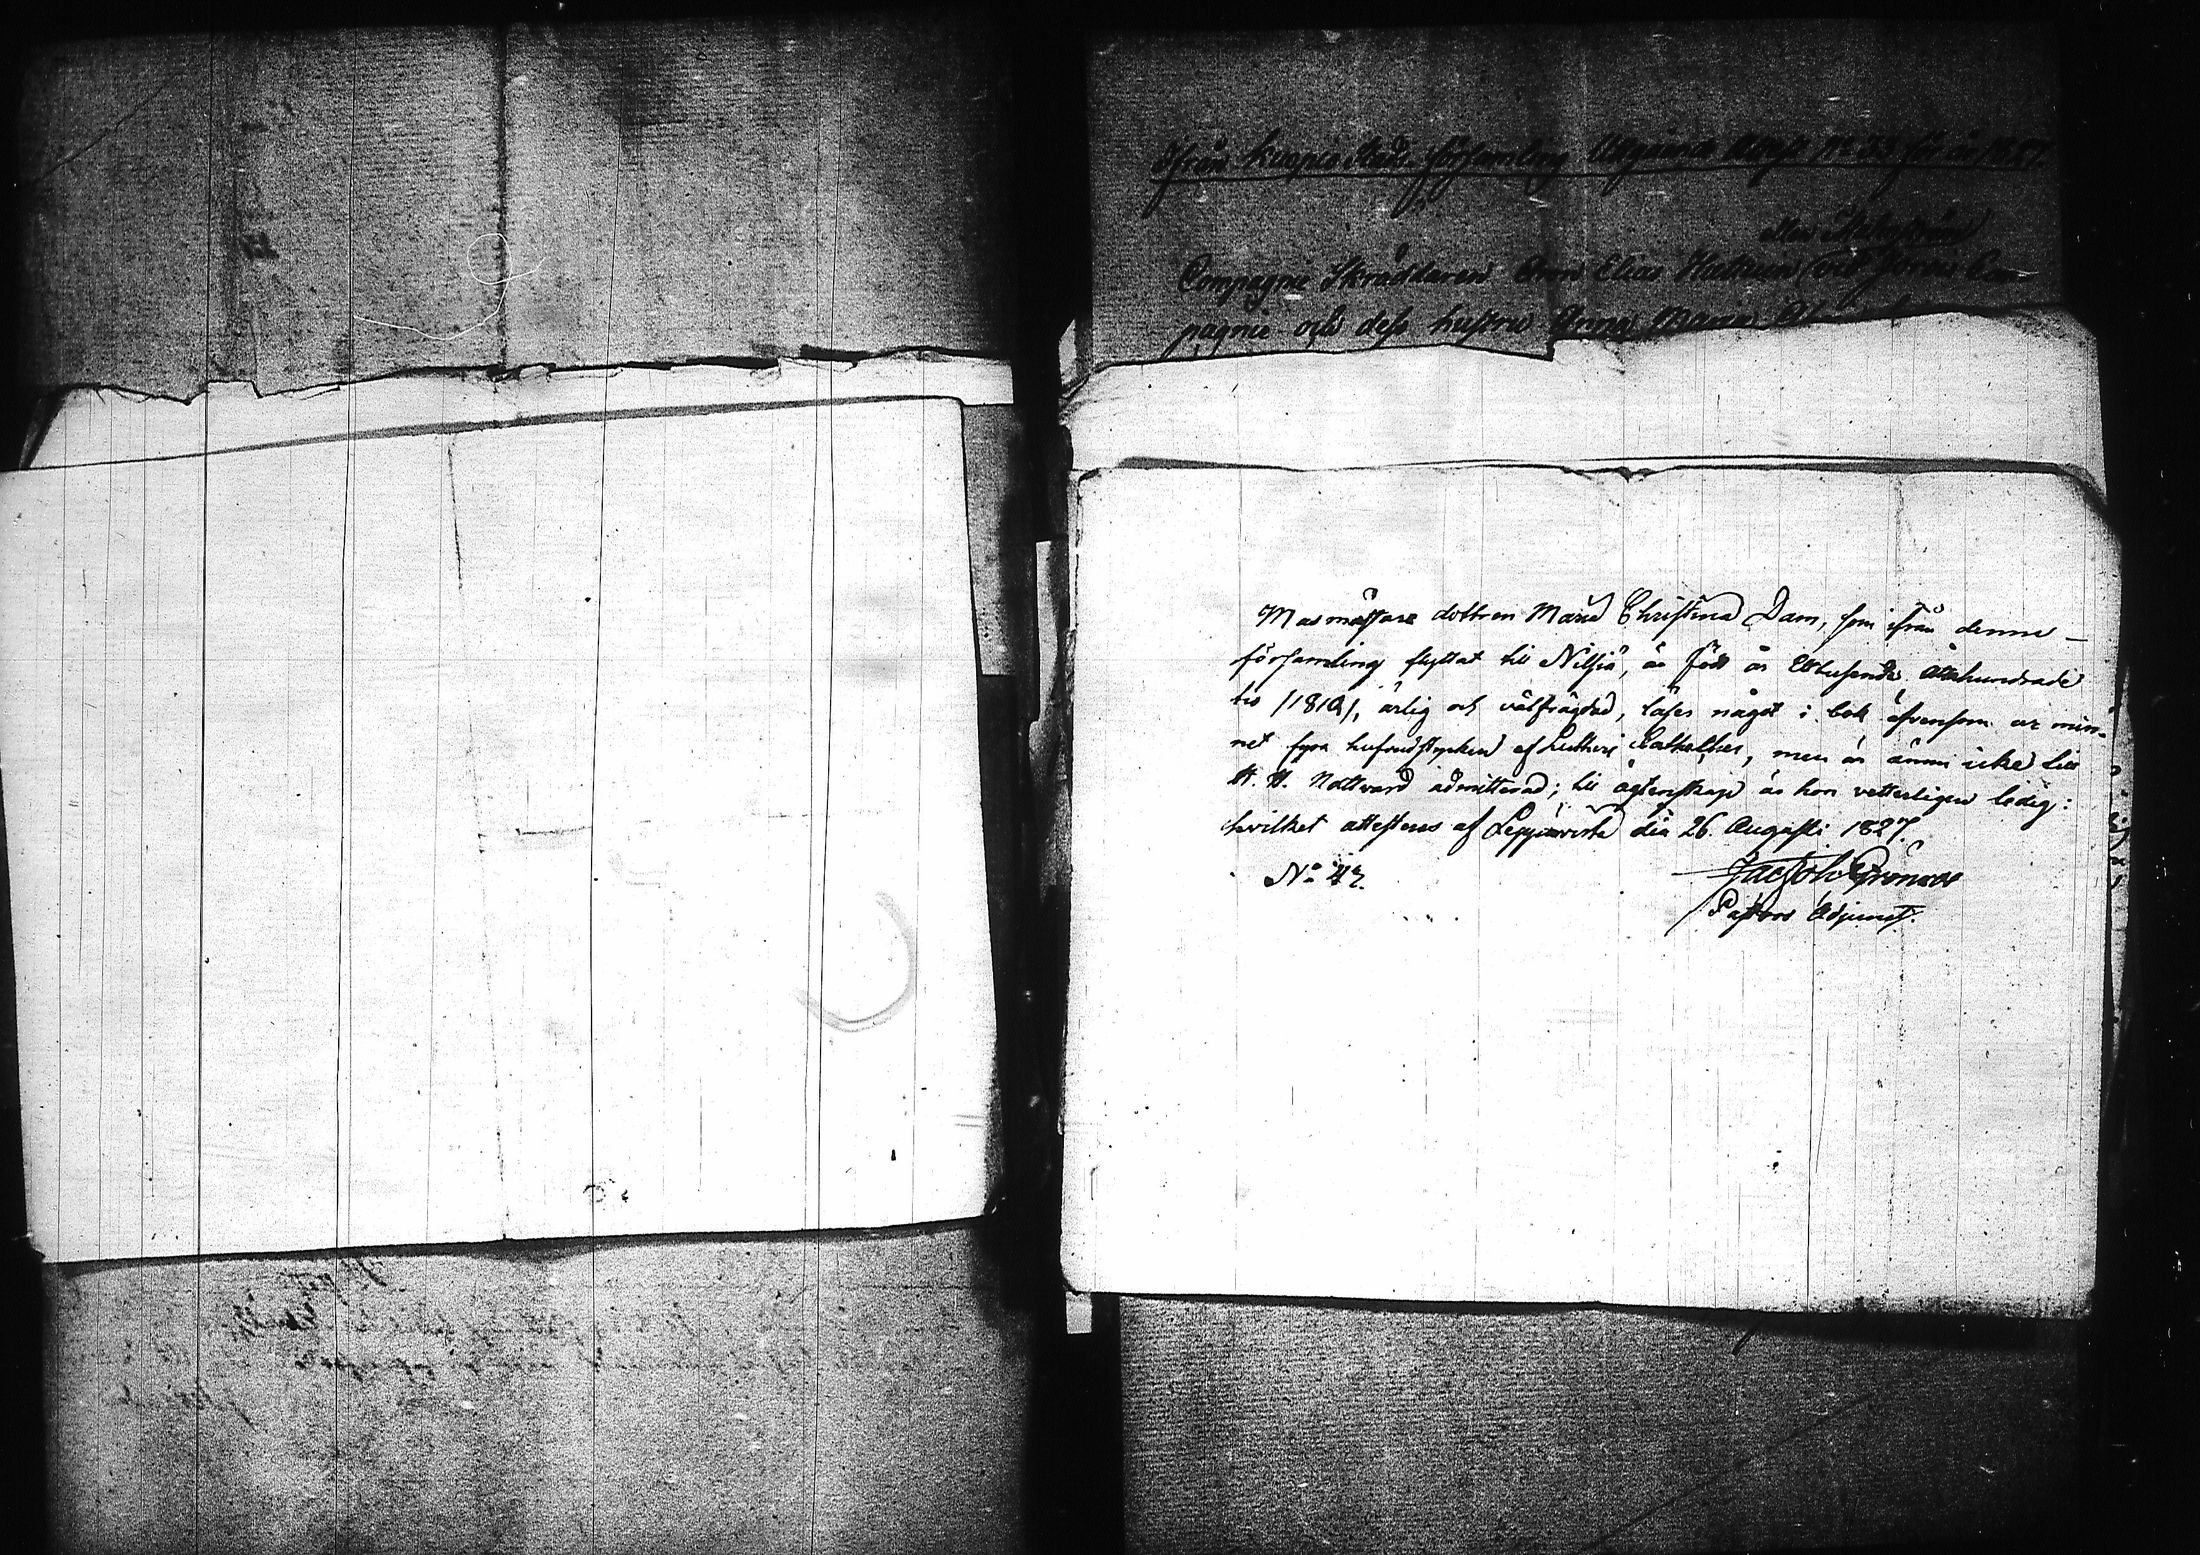 ifrån Kuopio Stads församling Utgående Attest No 33 för år 1827.
Compagnie Skräddaren Elias
pagnie och dess hustru Anna Maria
Masmästare dottren Maria Christina Dam, som ifrån denne
församling flyttat till Nilsiä, är född år Ettusende Åttahundrade
tio /1810/, ärlig och välfrägdad, läser något i bok äfvensom ur min-
net fyra hufvudstycken af Lutheri Cathelhes, men är ännu icke till
H. H. Nattvard admitterad; till ägtenskap är hon vetterligen ledig:
hvilket attesteras af Leppävirta den 26. Augusti 1827.
No 42.
Jacob Grönroos
Pastors Adjunct.